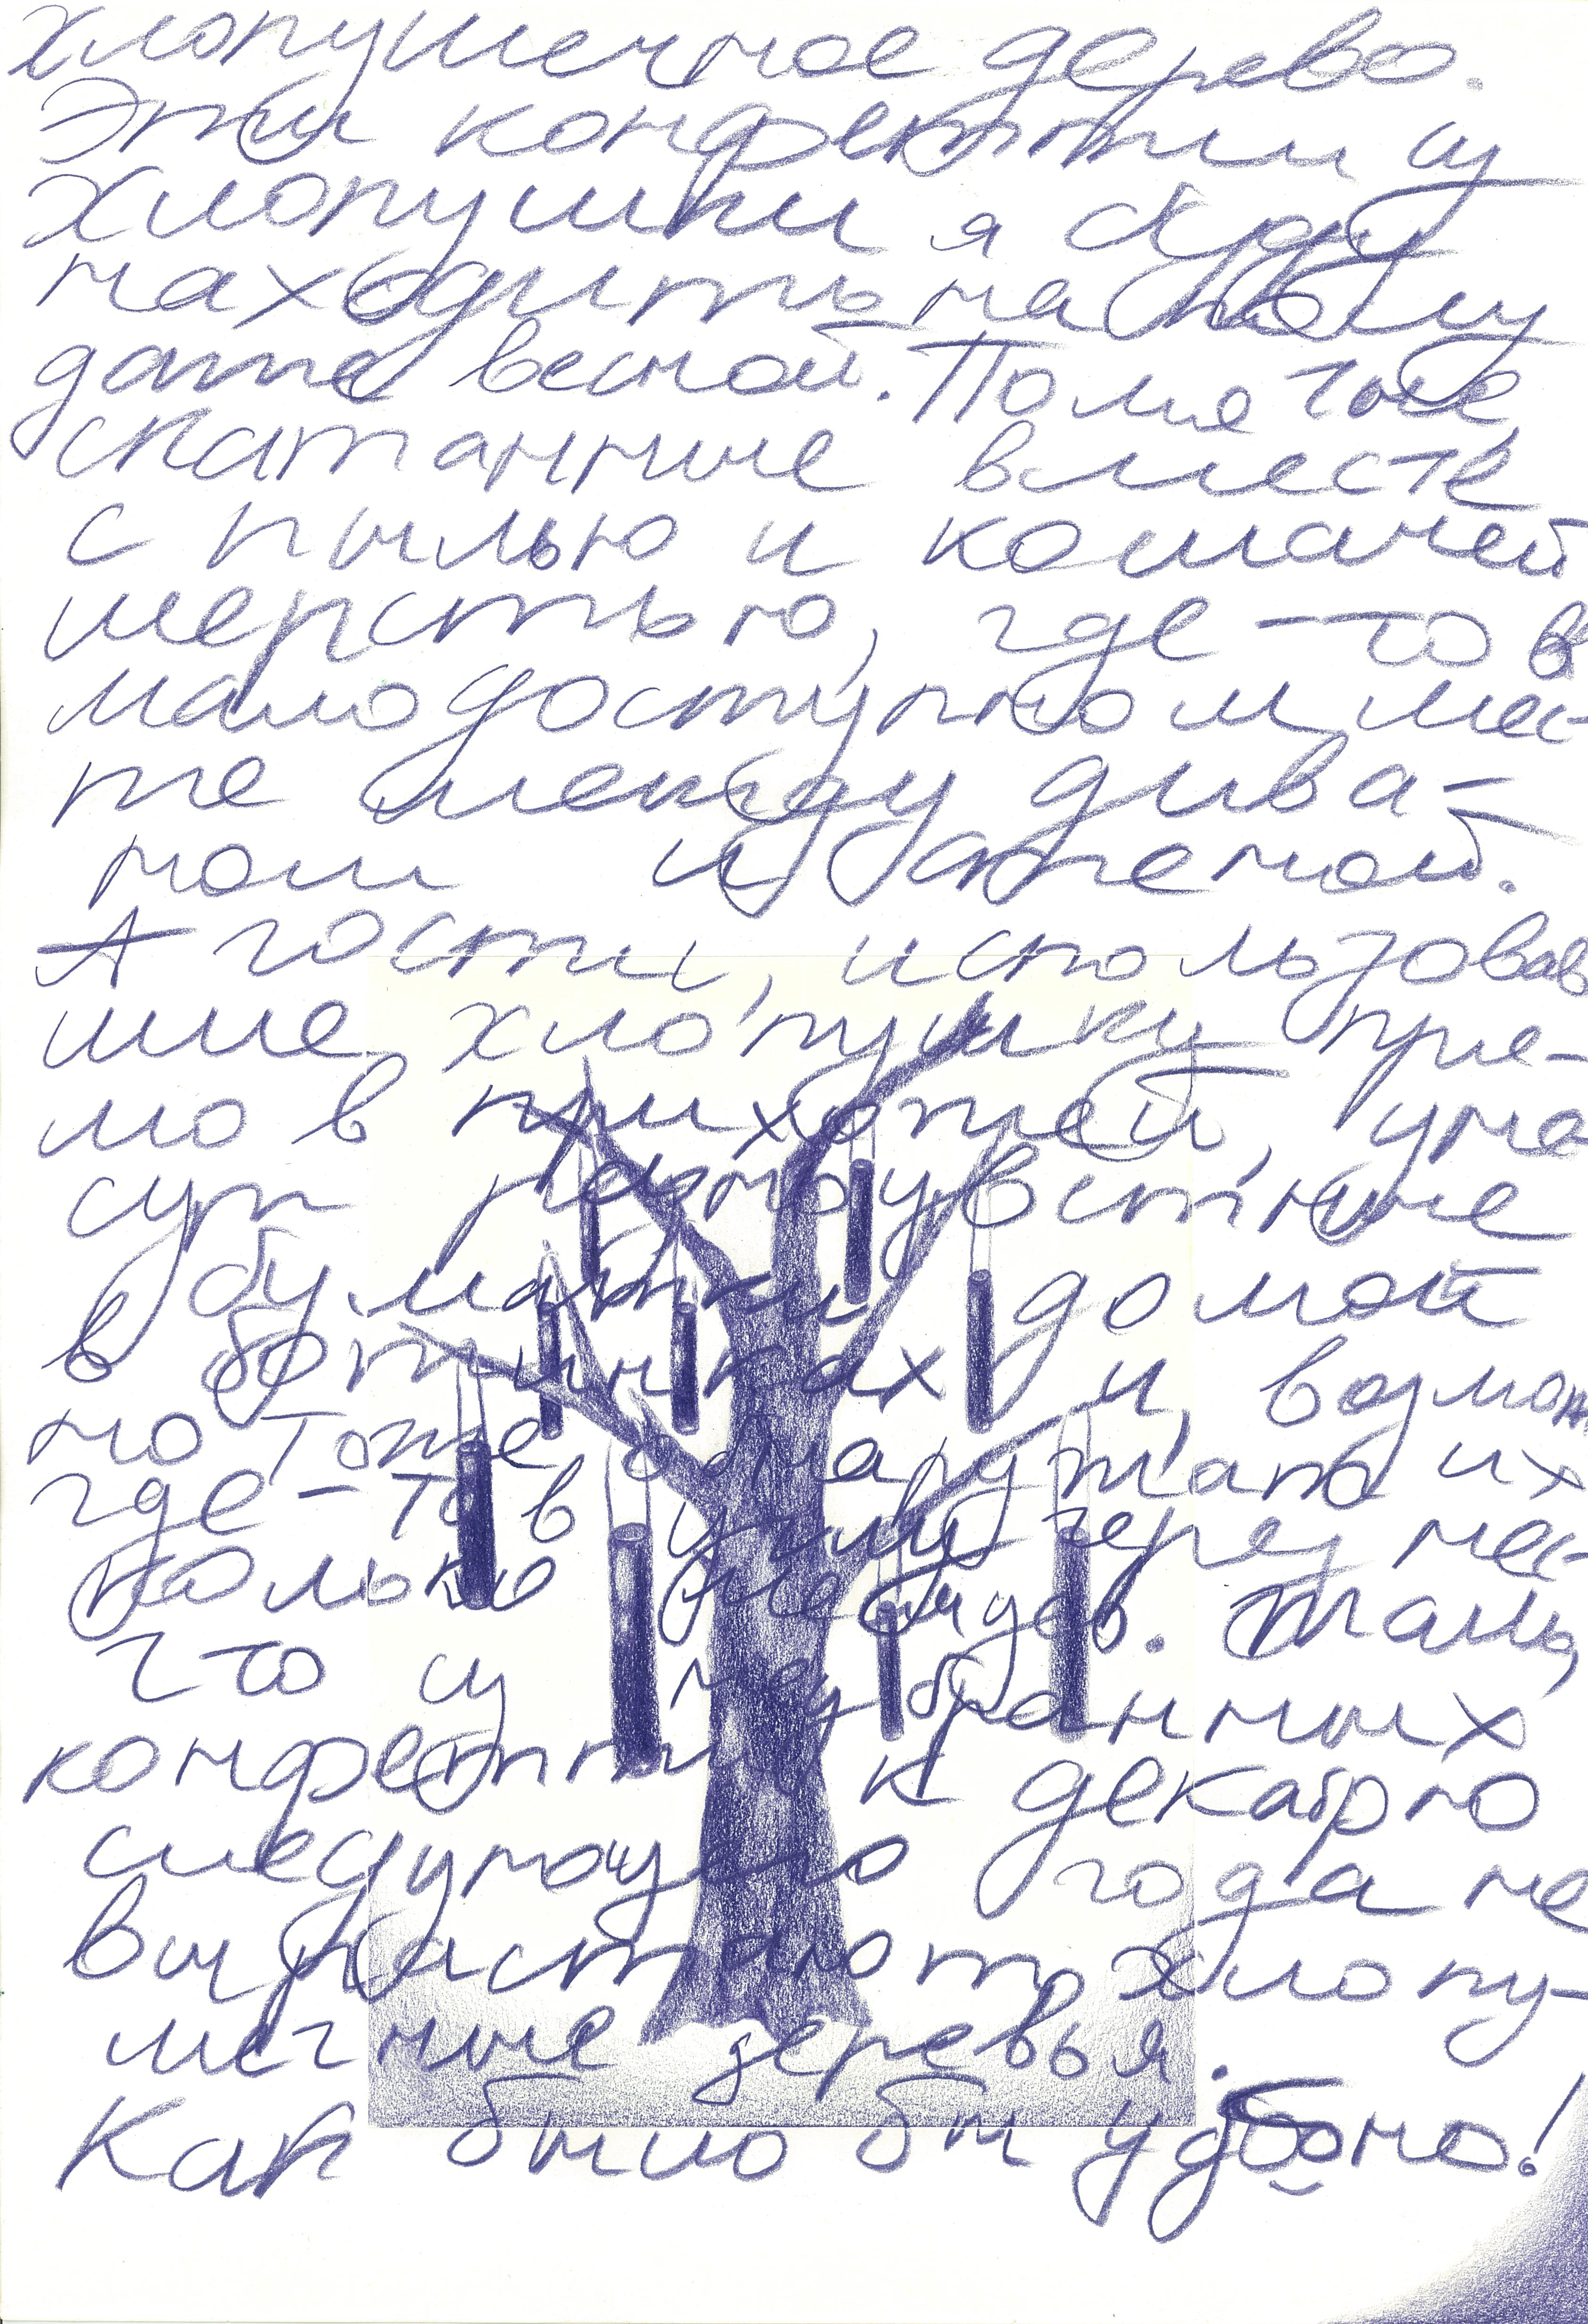 хлопушечное дерево.
Эти конфетти из
хлопушки я буду
находить на полу
даже весной. Помятые,
скатанные вместе
с пылью и кошачей
шерстью, где-то в
малодоступном мес-
те между дива-
ном и стеной.
А гости, использовав
шие хлопушку пря-
мо в прихожей, уно
сут разноцветные
бумажки домой
в ботинках и, возмож
но тоже обнаружат их
где-то в углу через нес-
колько месяцев. Жаль,
что из неубранных
конфетти к декабрю
следующего года не
вырастают хлопу-
шечные деревья.
Как было бы удобно!